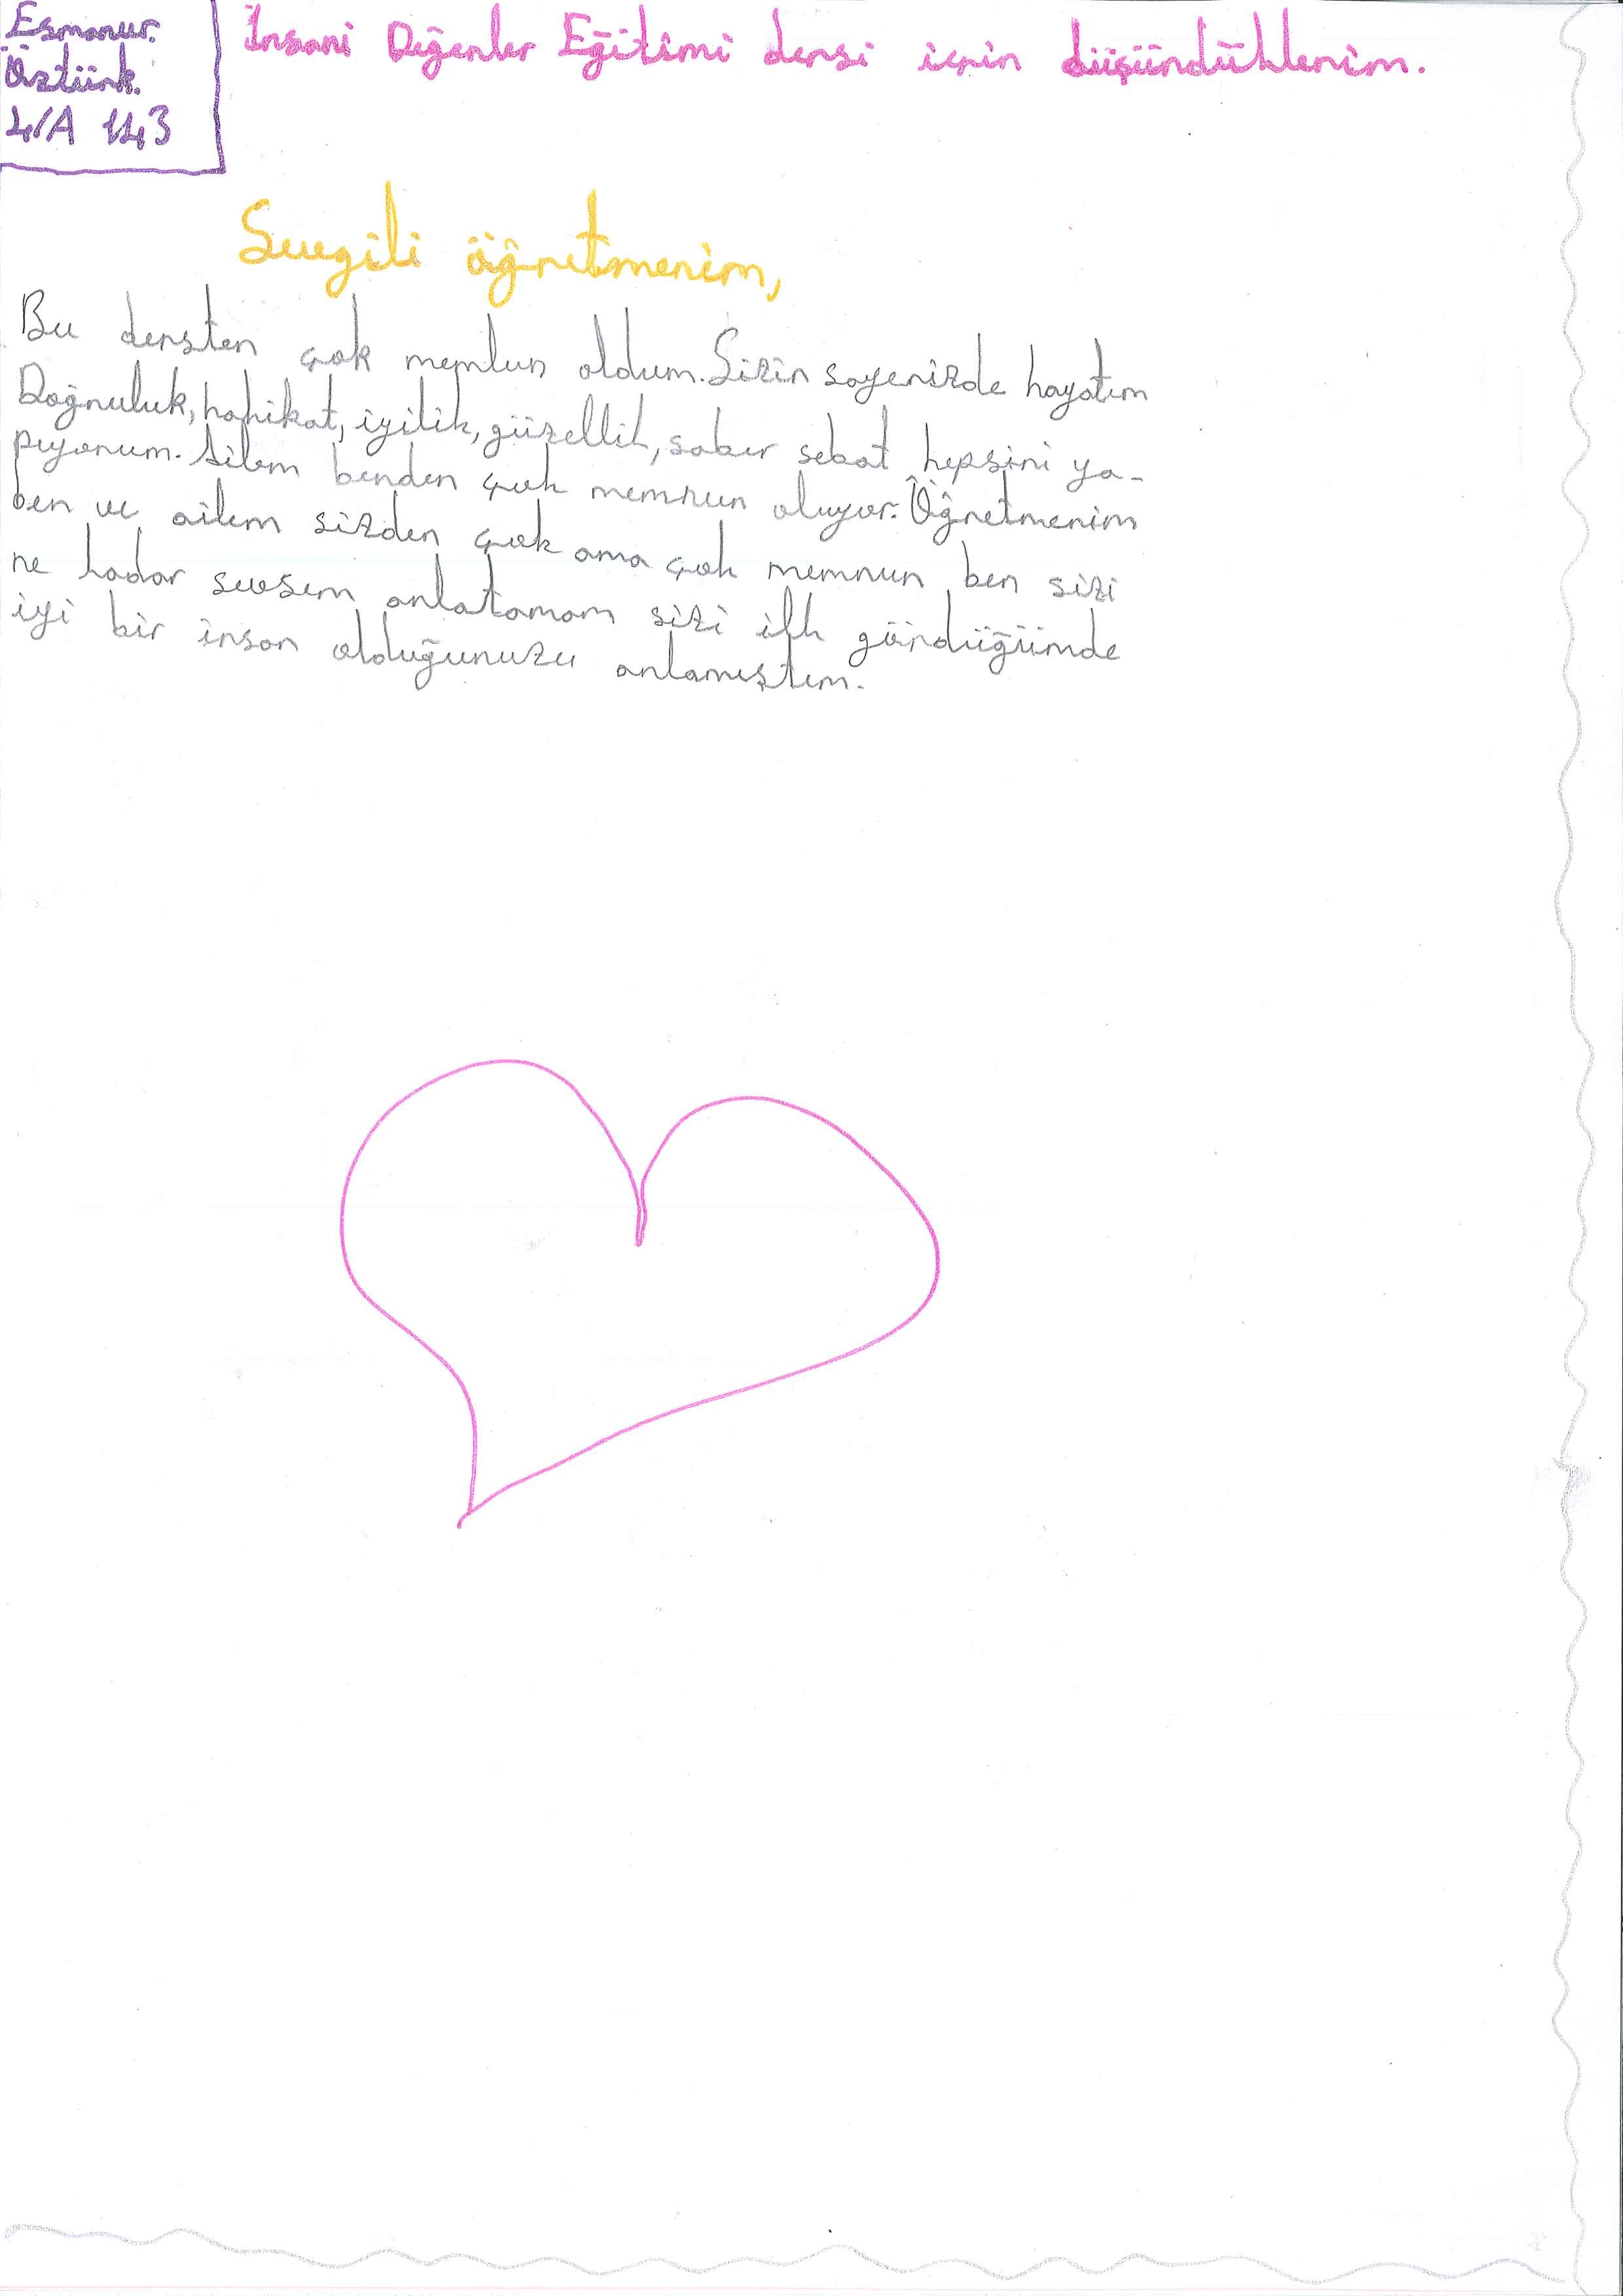 Esmanur.
Öztürk.
4/A 143
İnsani Değerler Eğitimi dersi için düşündüklerim.
Sevgili öğretmenim,
Bu dersten çok memlun oldum. Sizin sayenizde hayatım
Doğruluk, hakikat, iyilik, güzellik, sabır sebat hepsini ya-
pıyorum. Ailem benden çok memnun oluyor. Öğretmenim
ben ve ailem sizden çok ama çok memnun ben sizi
ne kadar sevsem anlatamam sizi ilk gördüğümde
iyi bir insan olduğunuzu anlamıştım.